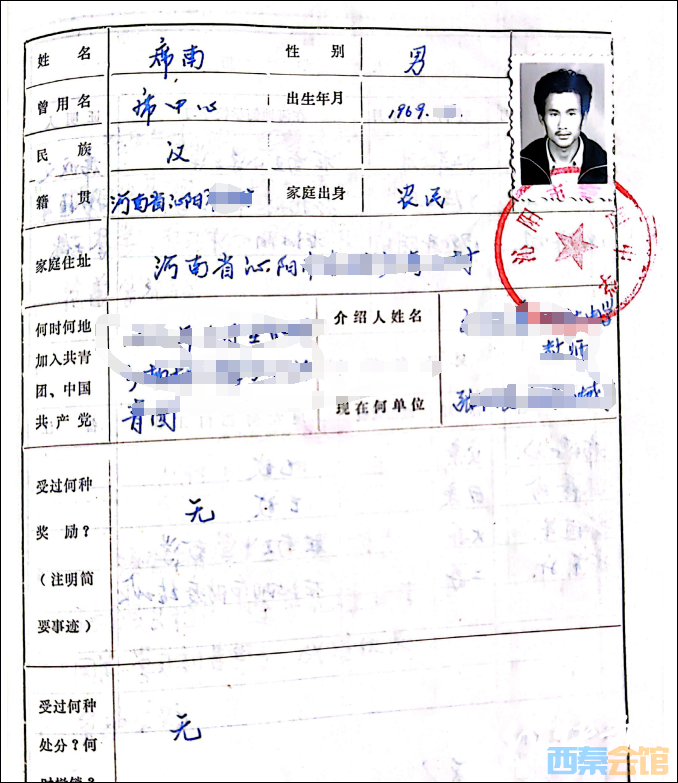 姓名 席南 性别 男
曾用名 席中心 出生年月 1969.
民族 汉
籍贯 河南省沁阳 家庭出身 农民
家庭住址 河南省沁阳市 村
何时何地加入共青团、中国共产党 青团
介绍人姓名 教师
现在何单位 张
受过何种
奖励? 无
(注明简
要事迹)
受过何种
处分?何 无
时撤销?
沁阳
西秦会馆